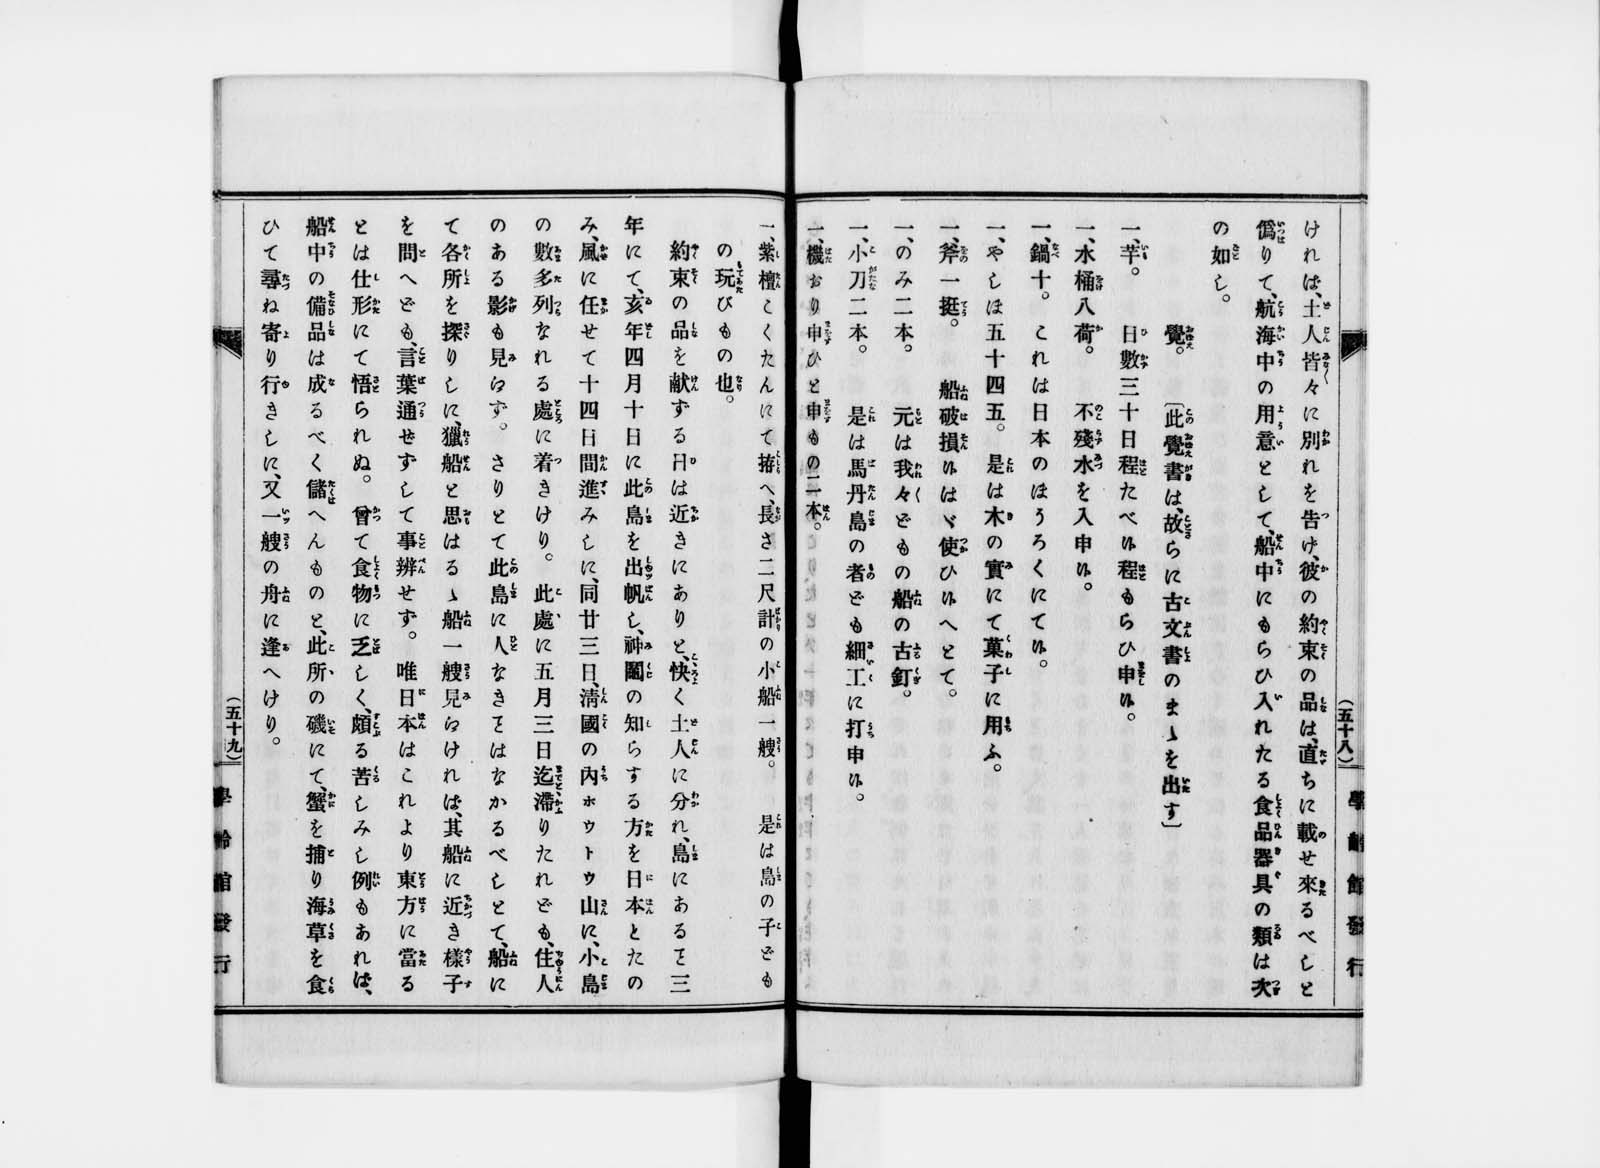 けれバ、土人皆々に別れを告げ、彼の約束の品は、直ちに載せ來るべしと
僞りて、航海中の用意として、船中にもらひ入れたる食品器具の類は次
の如し。
覺。〔此覺書は、故らに古文書のまゝを出す〕
一、芋。　日數三十日程たべ候程もらひ申候。
一、水桶八荷。　不殘水を入申候。
一、鍋十。　これは日本のほうろくにて候。
一、やしほ五十四五。　是は木の實にて菓子に用ふ。
一、斧一挺。　船破損候はゞ使ひ候へとて。
一、のみ二本。　元は我々どもの船の古釘。
一、小刀二本。　是は馬丹島の者ども細工に打申候。
一、機おり申ひと申もの二本。
（五十八）
學齡館發行
一、紫檀こくたんにて拵へ、長さ二尺計の小船一艘。　是は島の子ども
の玩びもの也。
約束の品を献ずる日は近きにありと、快く土人に分れ、島にあるを三
年にて、亥年四月十日に此島を出帆し、神鬮の知らする方を日本とたの
み、風に任せて十四日間進みしに、同廿三日、淸國の內ホウトウ山に、小島
の數多列なれる處に着きけり。此處に五月三日迄滯りたれども、住人
のある影も見えず。さりとて此島に人なきてはなかるべしとて、船に
て各所を探りしに、獵船と思はるゝ船一艘見えけれバ、其船に近き樣子
を問へども、言葉通せずして事辨せず。唯日本はこれより東方に當る
とは仕形にて悟られぬ。曾て食物に乏しく、頗る苦しみし例もあれバ、
船中の備品は成るべく儲へんものと、此所の磯にて、蟹を捕り海草を食
ひて尋ね寄り行きしに、又一艘の舟に逢へけり。
（五十九）
學齡館發行